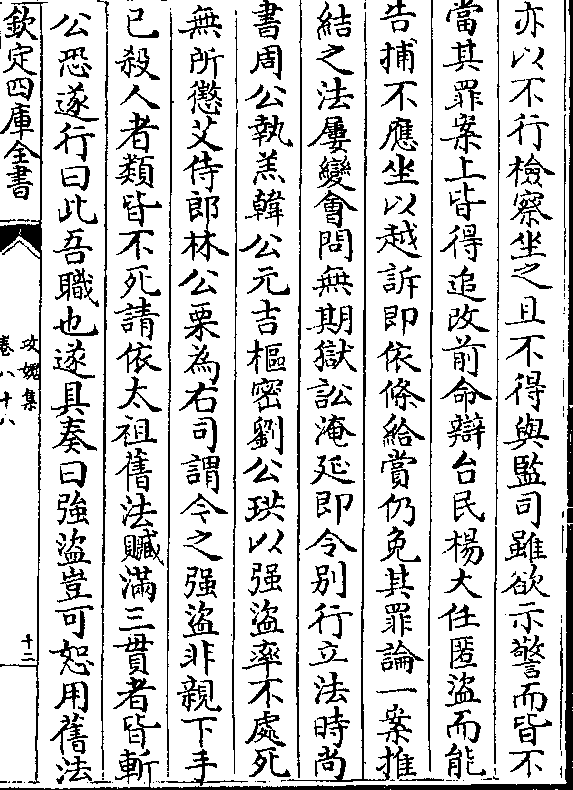 亦以不行檢察坐之且不得與監司雖欲示警而皆不
當其罪案上皆得追改前命辯台民楊大任匿盜而能
告捕不應坐以越訴即依條給賞仍免其罪論一案推
結之法屢變會問無期獄訟淹延即令别行立法時尚
書周公執羔韓公元吉樞密劉公珙以强盜率不處死
無所懲艾侍郎林公栗為右司謂今之强盜非親下手
已殺人者類皆不死請依太祖舊法贓滿三貫者皆斬
公恐遂行曰此吾職也遂具奏曰強盜豈可恕用舊法
欽定四庫全書
攻媿集
卷八十八
十二